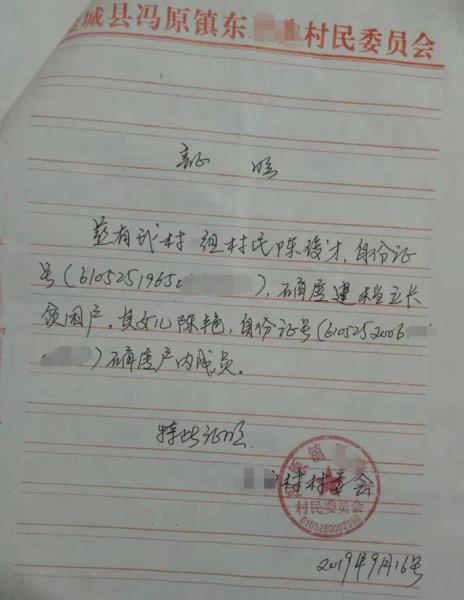 城县冯原镇东 村民委员会
证明
兹有我村 组村民陈俊才,身份证
号(6105251965 ),确属建档立卡
贫困户。其女儿陈艳,身份证号(6105252006
)确属户内成员。
特此证明
村村委会
原镇
村民委员会
2019年9月16号